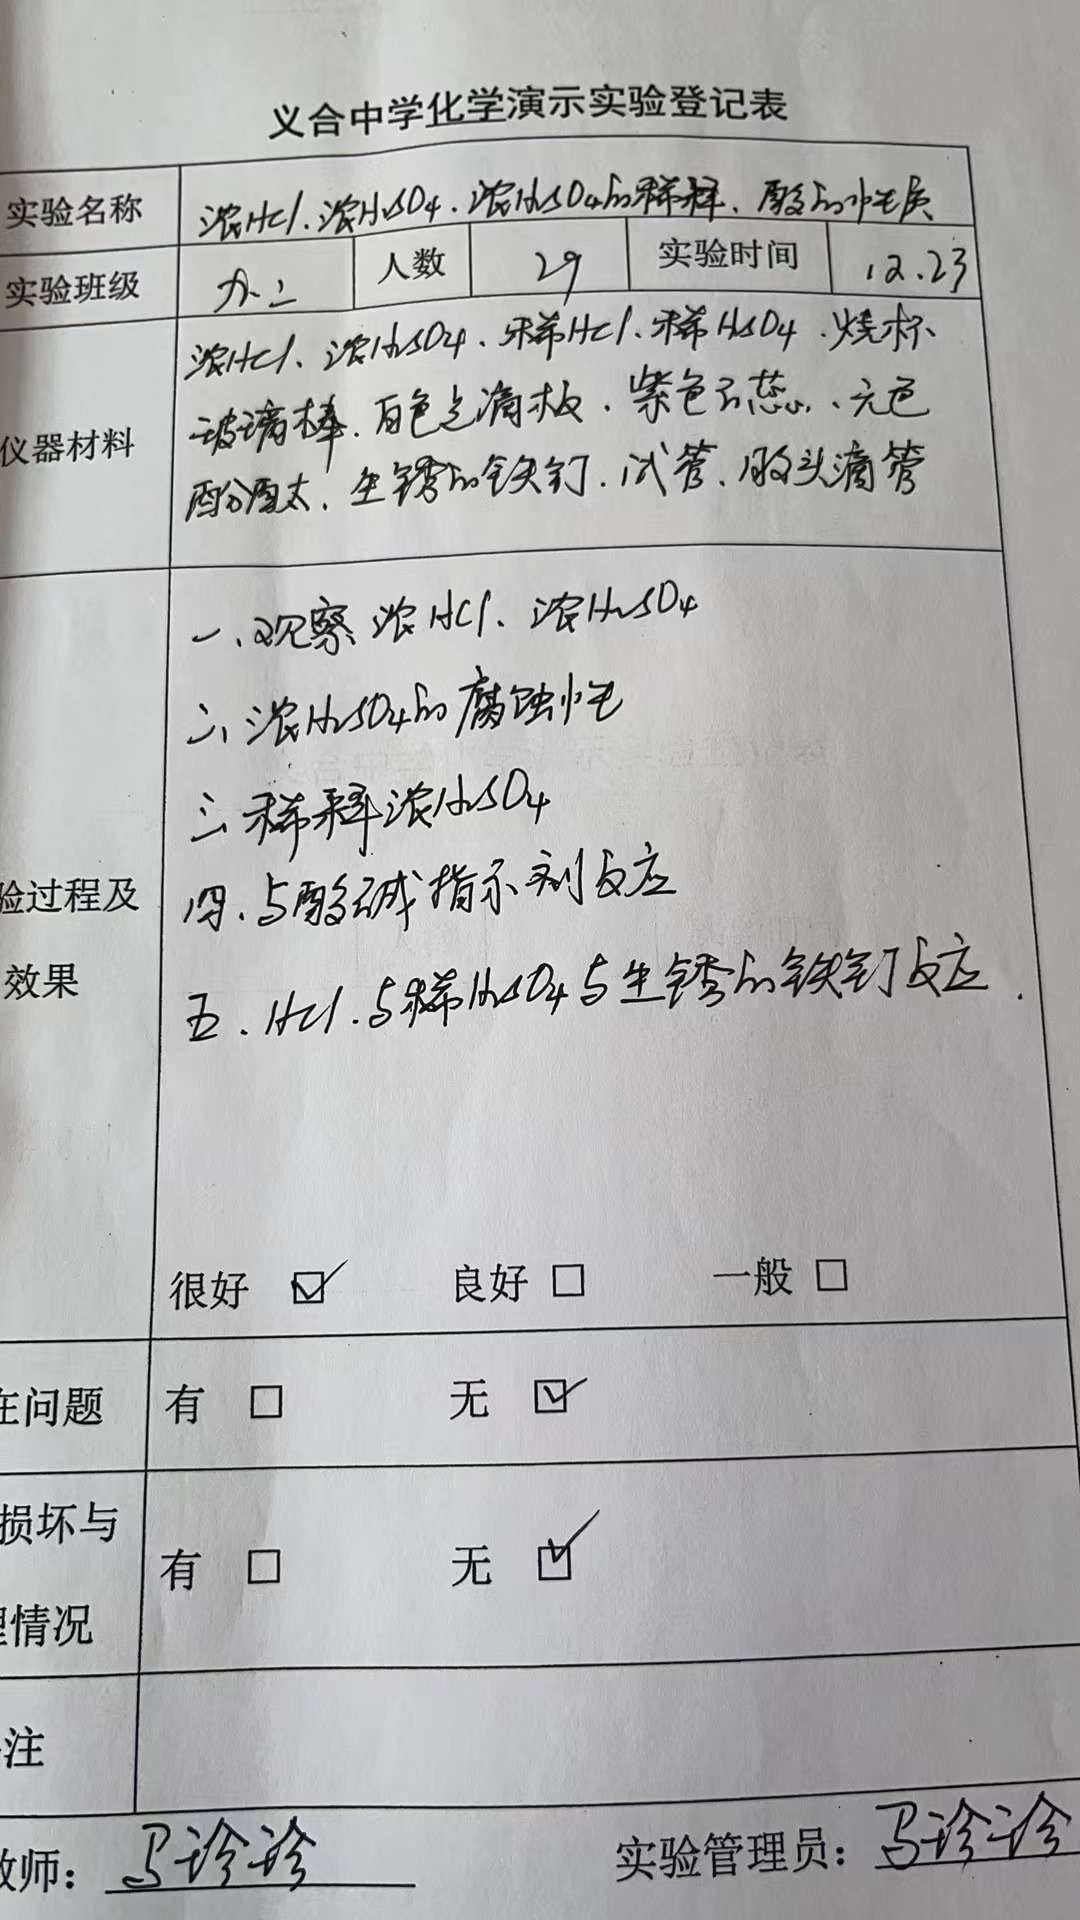 义合中学化学演示实验登记表
实验名称 浓HCl、浓H₂SO₄、浓H₂SO₄的稀释、酸的性质
实验班级 九.二 人数 29 实验时间 12.23
仪器材料
浓HCl、浓H₂SO₄、稀HCl、稀H₂SO₄、烧杯
玻璃棒、白色点滴板、紫色石蕊、无色
酚酞、生锈的铁钉、试管、胶头滴管
验过程及
效果
一、观察浓HCl、浓H₂SO₄
二、浓H₂SO₄的腐蚀性
三、稀释浓H₂SO₄
四、与酸碱指示剂反应
五、HCl、与稀H₂SO₄与生锈的铁钉反应.
很好 ☑ 良好 □ 一般 □
在问题 有 □ 无 ☑
损坏与
理情况
有 □ 无 ☑
注
教师：马诊诊 实验管理员：马诊诊